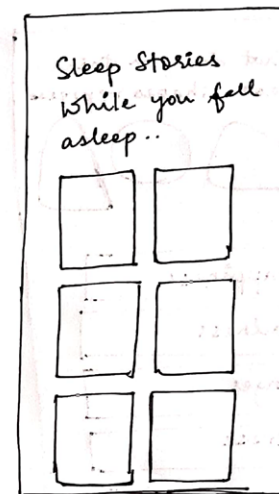 Sleep Stories
while you fall
asleep..